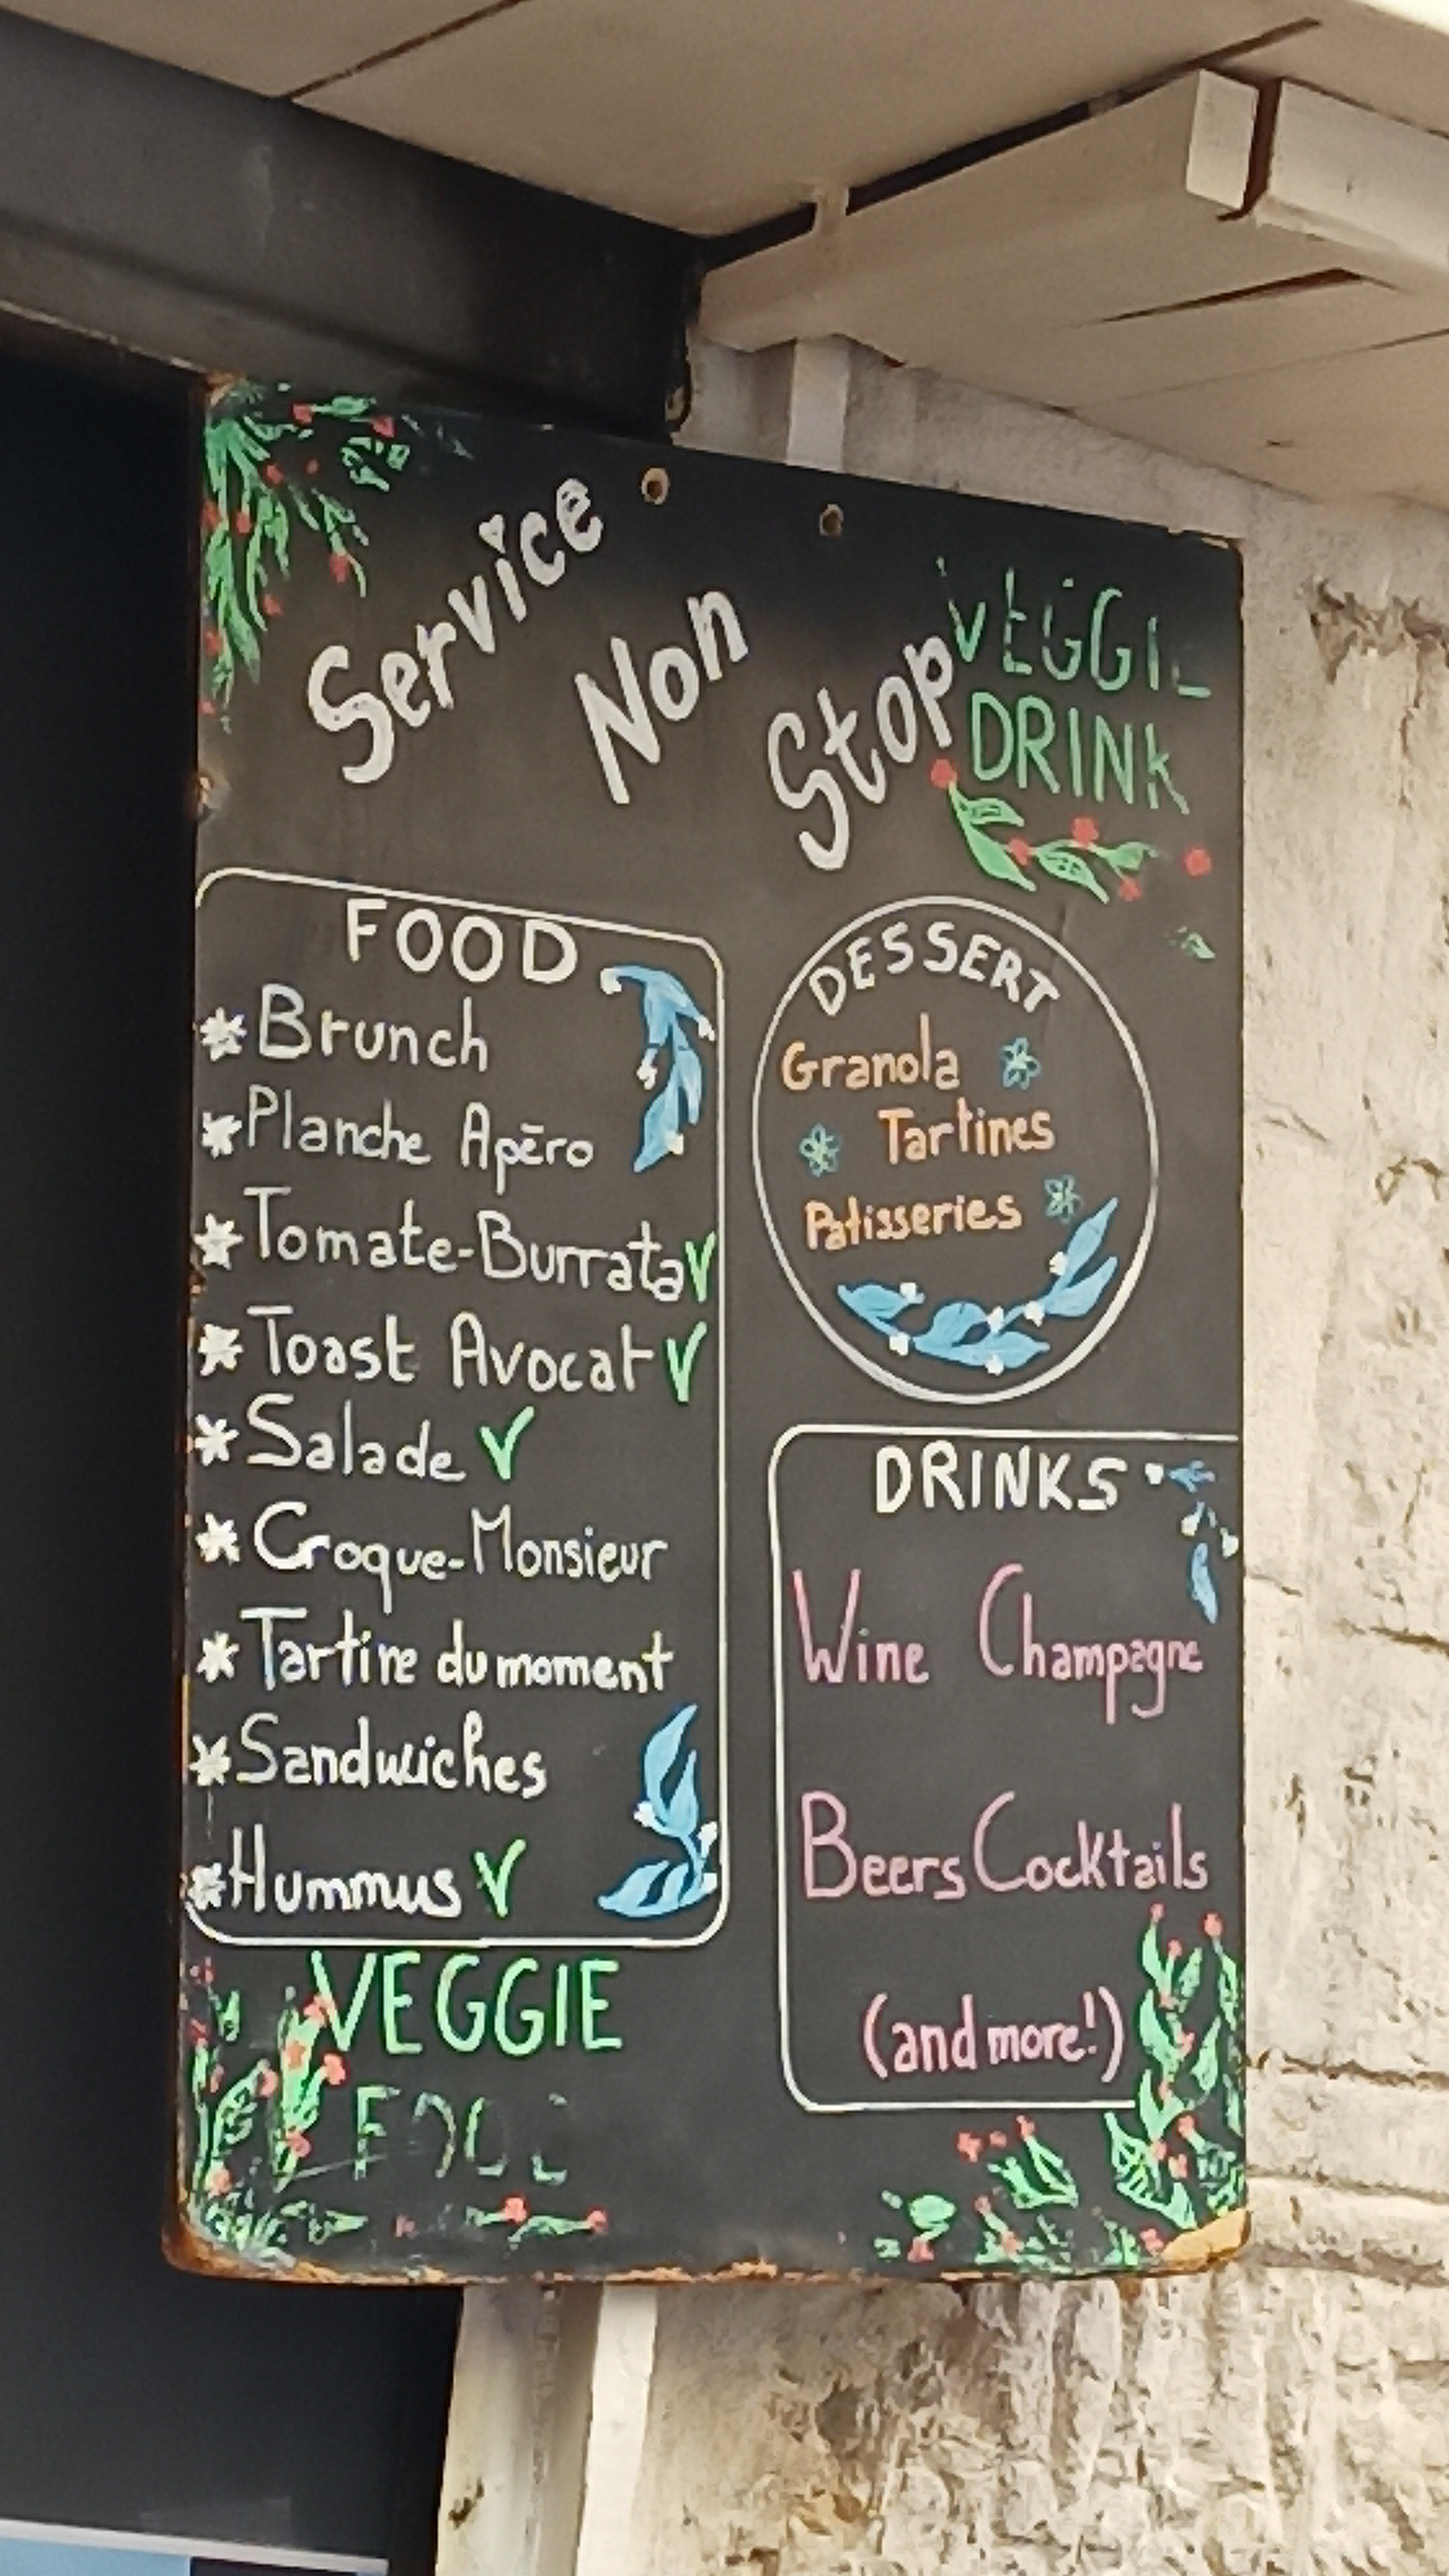 Service
Non
Stop
VEGGIE
DRINK
FOOD
* Brunch
* Planche Apēro
* Tomate-Burrata V
* Toast Avocat V
* Salade V
* Croque-Monsieur
* Tartine du moment
* Sandwiches
* Hummus V
VEGGIE
FOOD
DESSERT
Granola
Tartines
Patisseries
DRINKS
Wine Champagne
Beers Cocktails
(and more!)